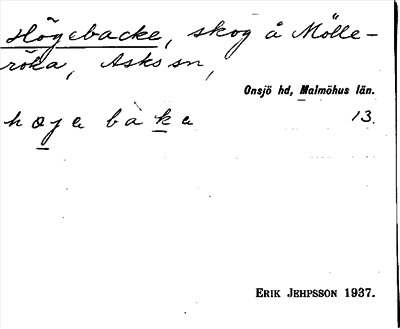 Högebacke, skog å Mölle-
röka, Asks sn,
Onsjö hd, Malmöhus län.
høja baka 13.
ERIK JEHPSSON 1937.